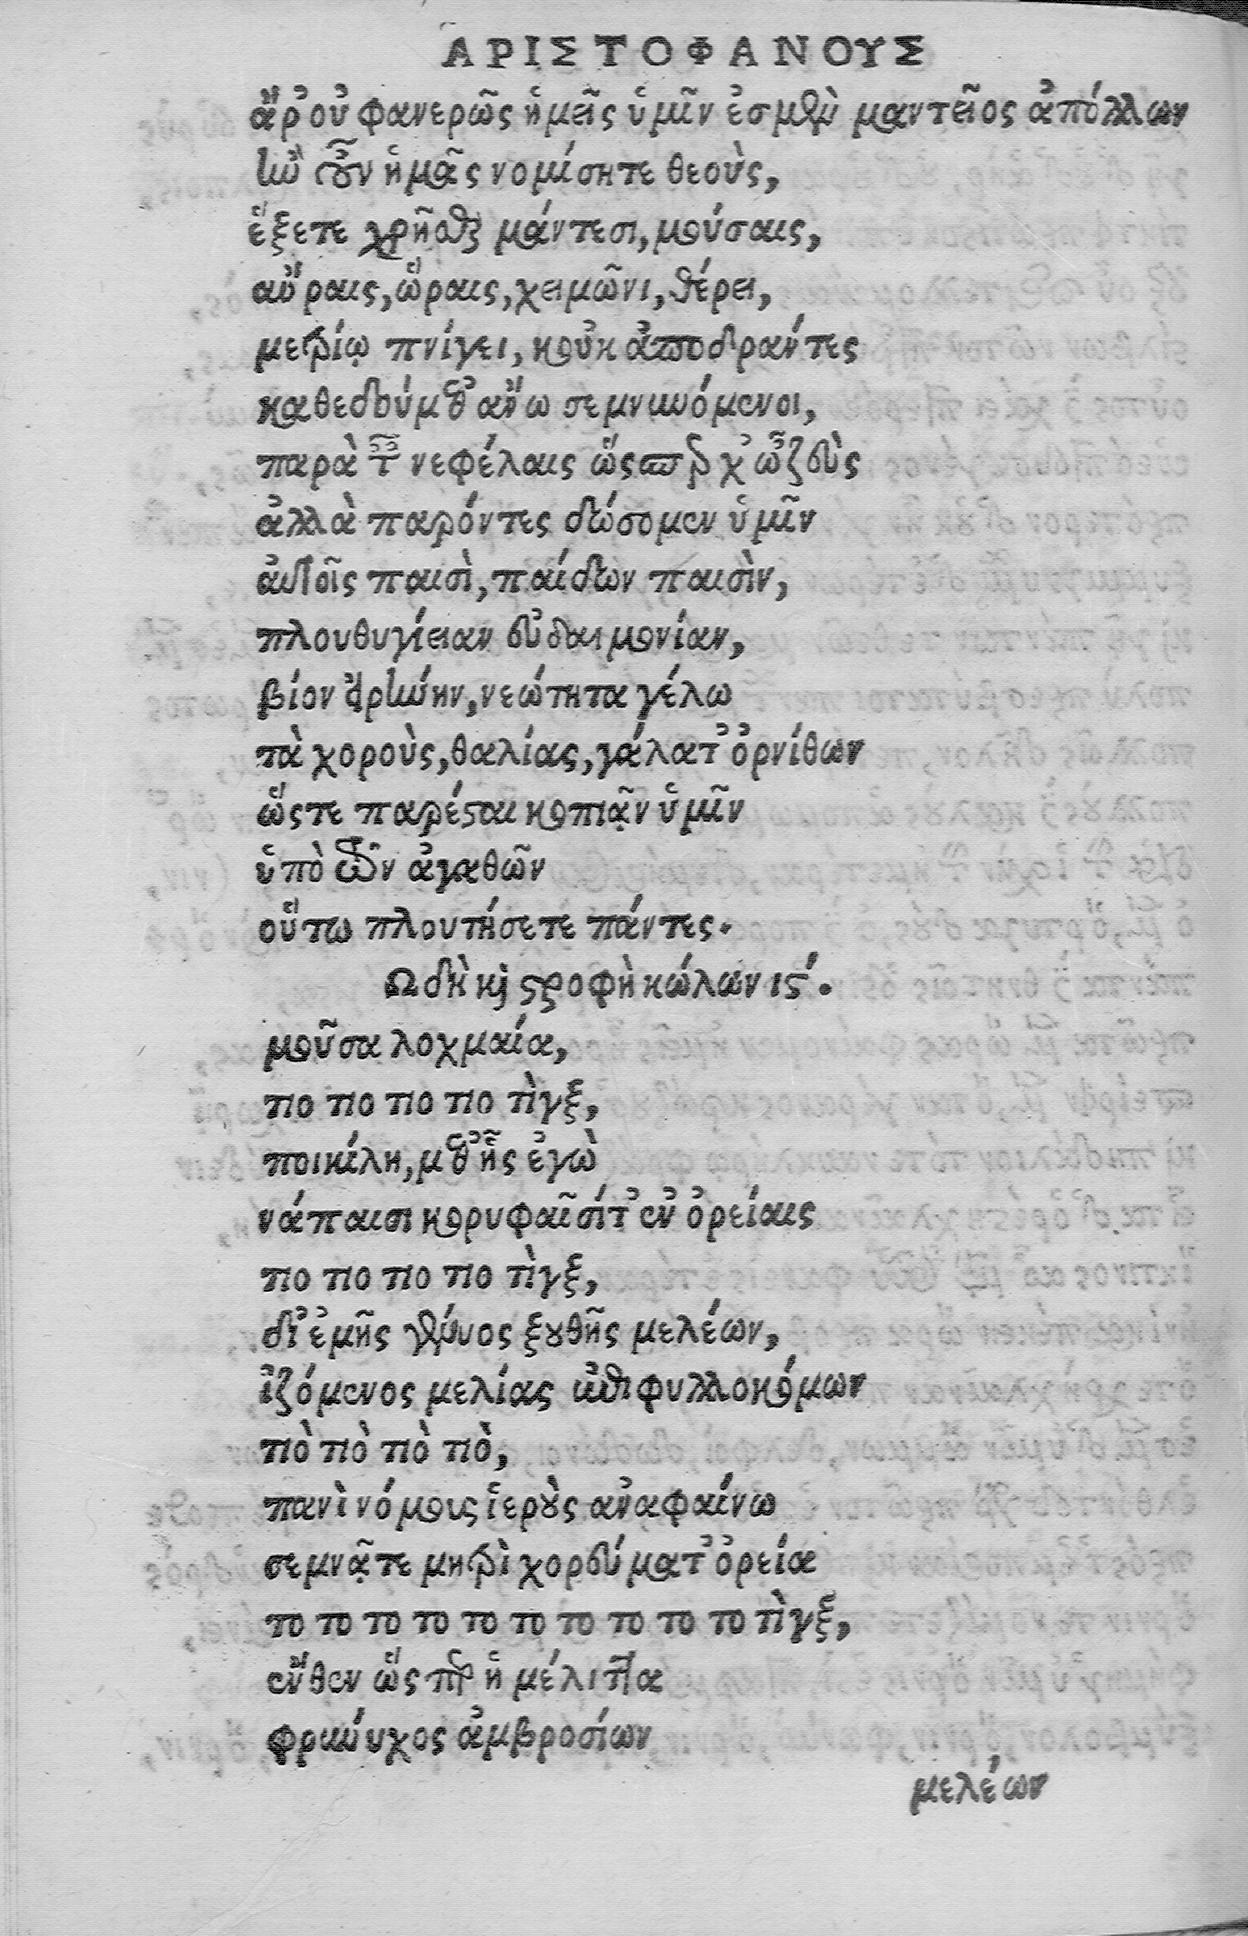 ΑΡΙΣΤΟΦΑΝΟΥΣ
ἆρ' οὐ φανερῶς ἡμεῖς ὑμῖν ἐσμὲν μαντεῖος ἀπόλλων
ἢν οὖν ἡμᾶς νομίσητε θεοὺς,
ἕξετε χρῆσθαι μάντεσι, μούσαις,
αὔραις, ὥραις, χειμῶνι, θέρει,
μετρίῳ πνίγει, κοὐκ ἀποδράντες
καθεδούμεθ' ἄνω σεμνυνόμενοι,
παρὰ τ νεφέλαις ὥςπερ χ' ὦ ζεὺς
ἀλλὰ παρόντες δώσομεν ὑμῖν
αὐτοῖς παισὶ, παίδων παισὶν,
πλουθυγίειαν εὐδαιμονίαν,
βίον εἰρήνην, νεότητα γέλω
τὰ χοροὺς, θαλίας, γάλατ' ὀρνίθων
ὥςτε παρέσται κοπιᾷν ὑμῖν
ὑπὸ τῶν ἀγαθῶν
οὕτω πλουτήσετε πάντες.
Ωδὴ κ στροφὴ κώλων ις'.
μοῦσα λοχμαία,
τιο τιο τιο τιο τὶγξ,
ποικίλη, μεθ' ἧς ἐγὼ
νάπαισι κορυφαῖσίτ' ἐν ὀρείαις
τιο τιο τιο τιο τὶγξ,
δι' ἐμῆς γένυος ξουθῆς μελέων,
ἱζόμενος μελίας ἐπι φυλλοκόμων
τιὸ τιὸ τιὸ τιὸ,
πανὶ νόμοις ἱεροὺς ἀναφαίνω
σεμνᾷτε μητρὶ χορεύματ' ὀρεία
το το το το το το το το το το τὶγξ,
ἔνθεν ὥς περ ἡ μέλιττα
φρύνυχος ἀμβροσίων
μελέων